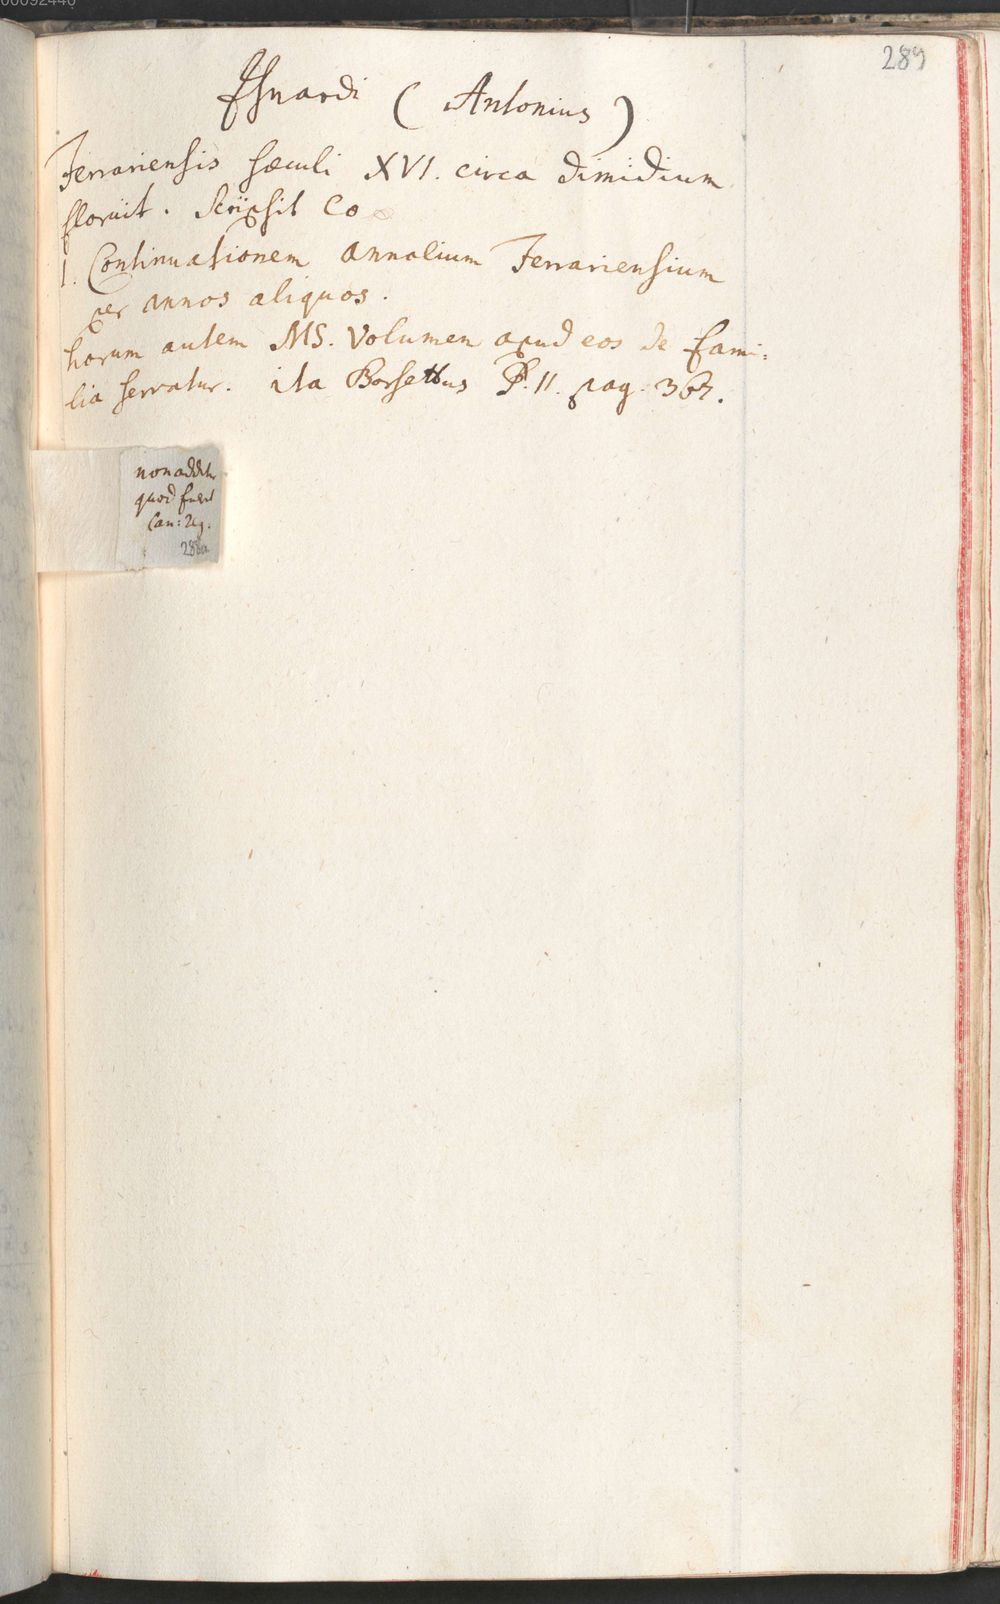 00092440
289
Isnardi (Antonius)
Ferrariensis sæculi XVI. circa dimidium
floruit. Scripsit Co
1. Continuationem Annalium Ferrariensium
per annos aliquos.
horum autem MS. Volumen apud eos de fami:
lia servatur. ita Borsettus P. II. pag. 367.
non additur
quod fuerit
Can: Reg.
288a